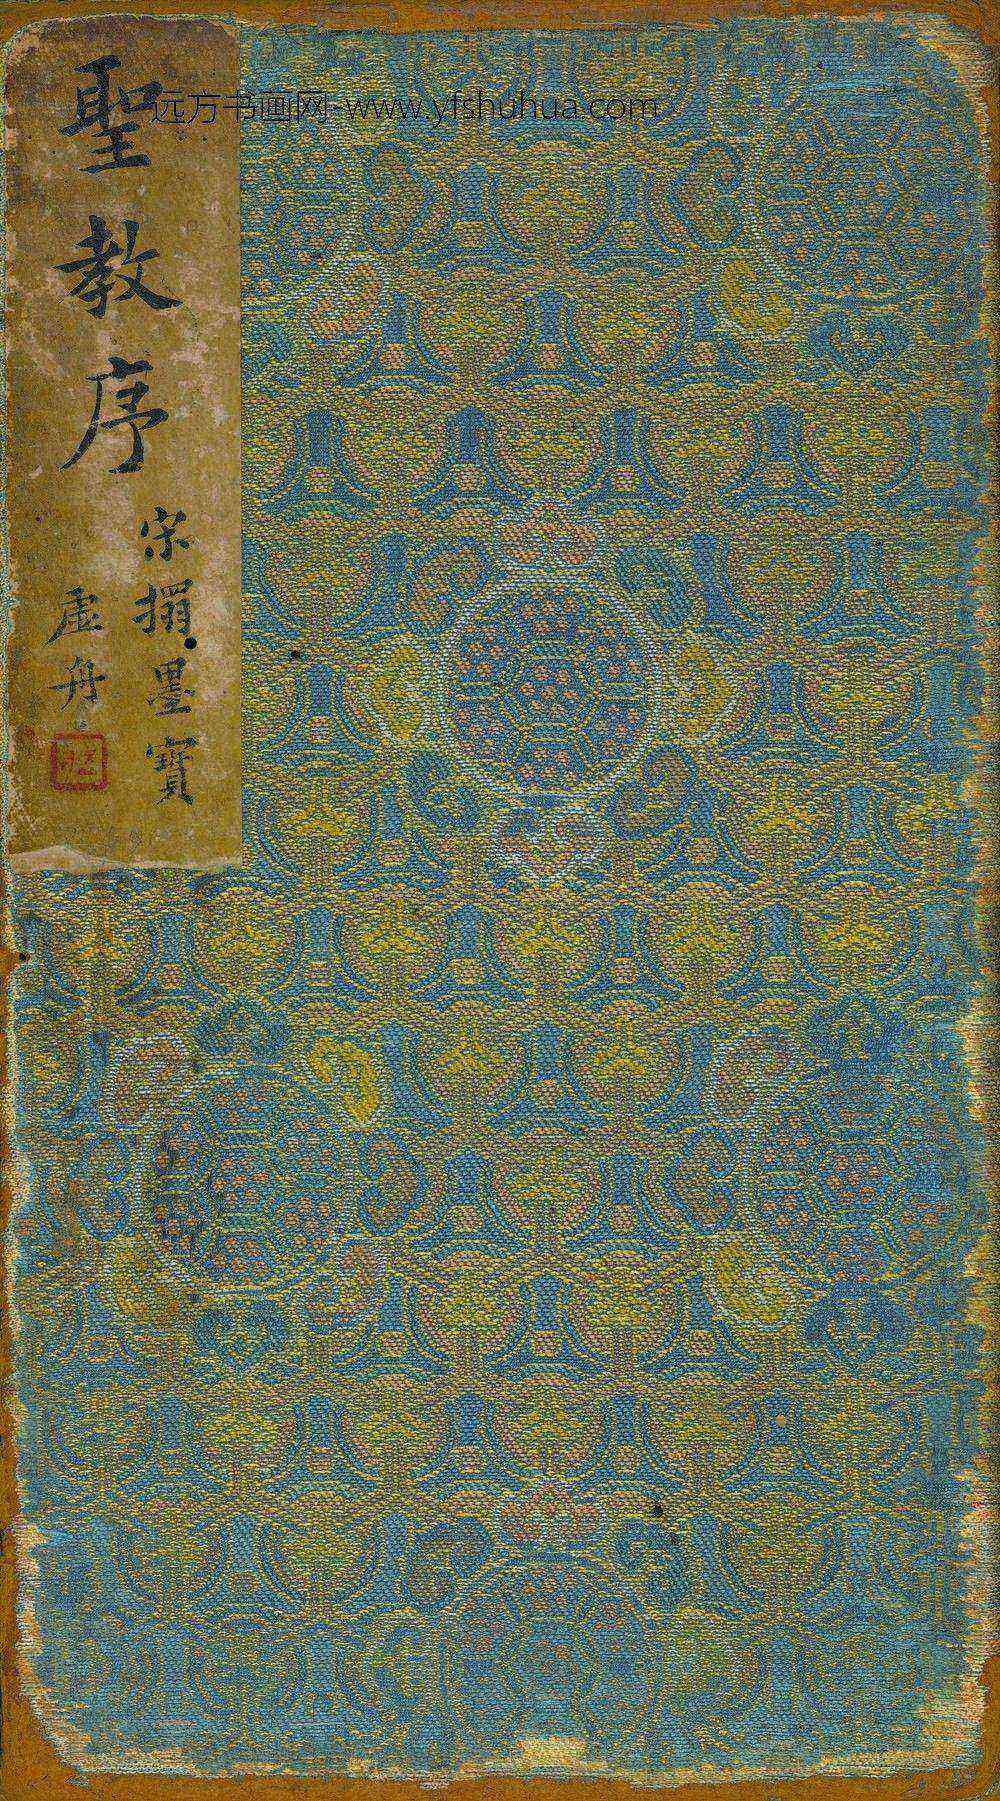 聖教序
宋搨墨寶
虛舟
远方书画网-www.yfshuhua.com